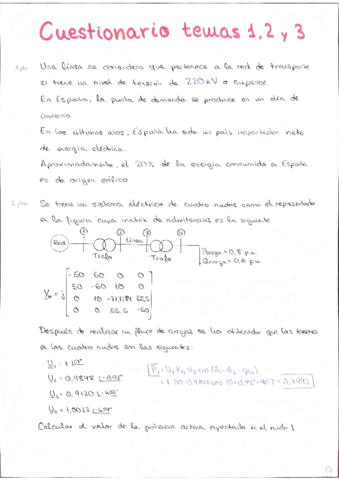 Cuestionario temas 1, 2 y 3
1 pto Una línea se considera que pertenece a la red de transporte
si tiene un nivel de tensión de 220kV o superior.
En España, la punta de demanda se produce en un día de
invierno.
En los últimos años, España ha sido un país importador neto
de energía eléctrica.
Aproximadamente, el 20% de la energía consumida en España
es de origen eólico
2 ptos Se tiene un sistema eléctrico de cuatro nudos como el representado
en la figura cuya matriz de admitancias es la siguiente
① ② ③ ④
Red Trafo Línea Trafo
Pcarga = 0,8 p.u.
Qcarga = 0,6 p.u.
-50 50 0 0
50 -60 10 0
0 10 55,5
0 0 55,5 -50
Después de realizar un flujo de cargas se ha obtenido que las tensiones
en los cuatro nudos son las siguientes:
U₁ = 1 |0°
U₂ = 0,9848
U₃ = 0,9130
U₄ = 1,0023
= 0,7992
Calcular el valor de la potencia activa inyectada en el nudo 1